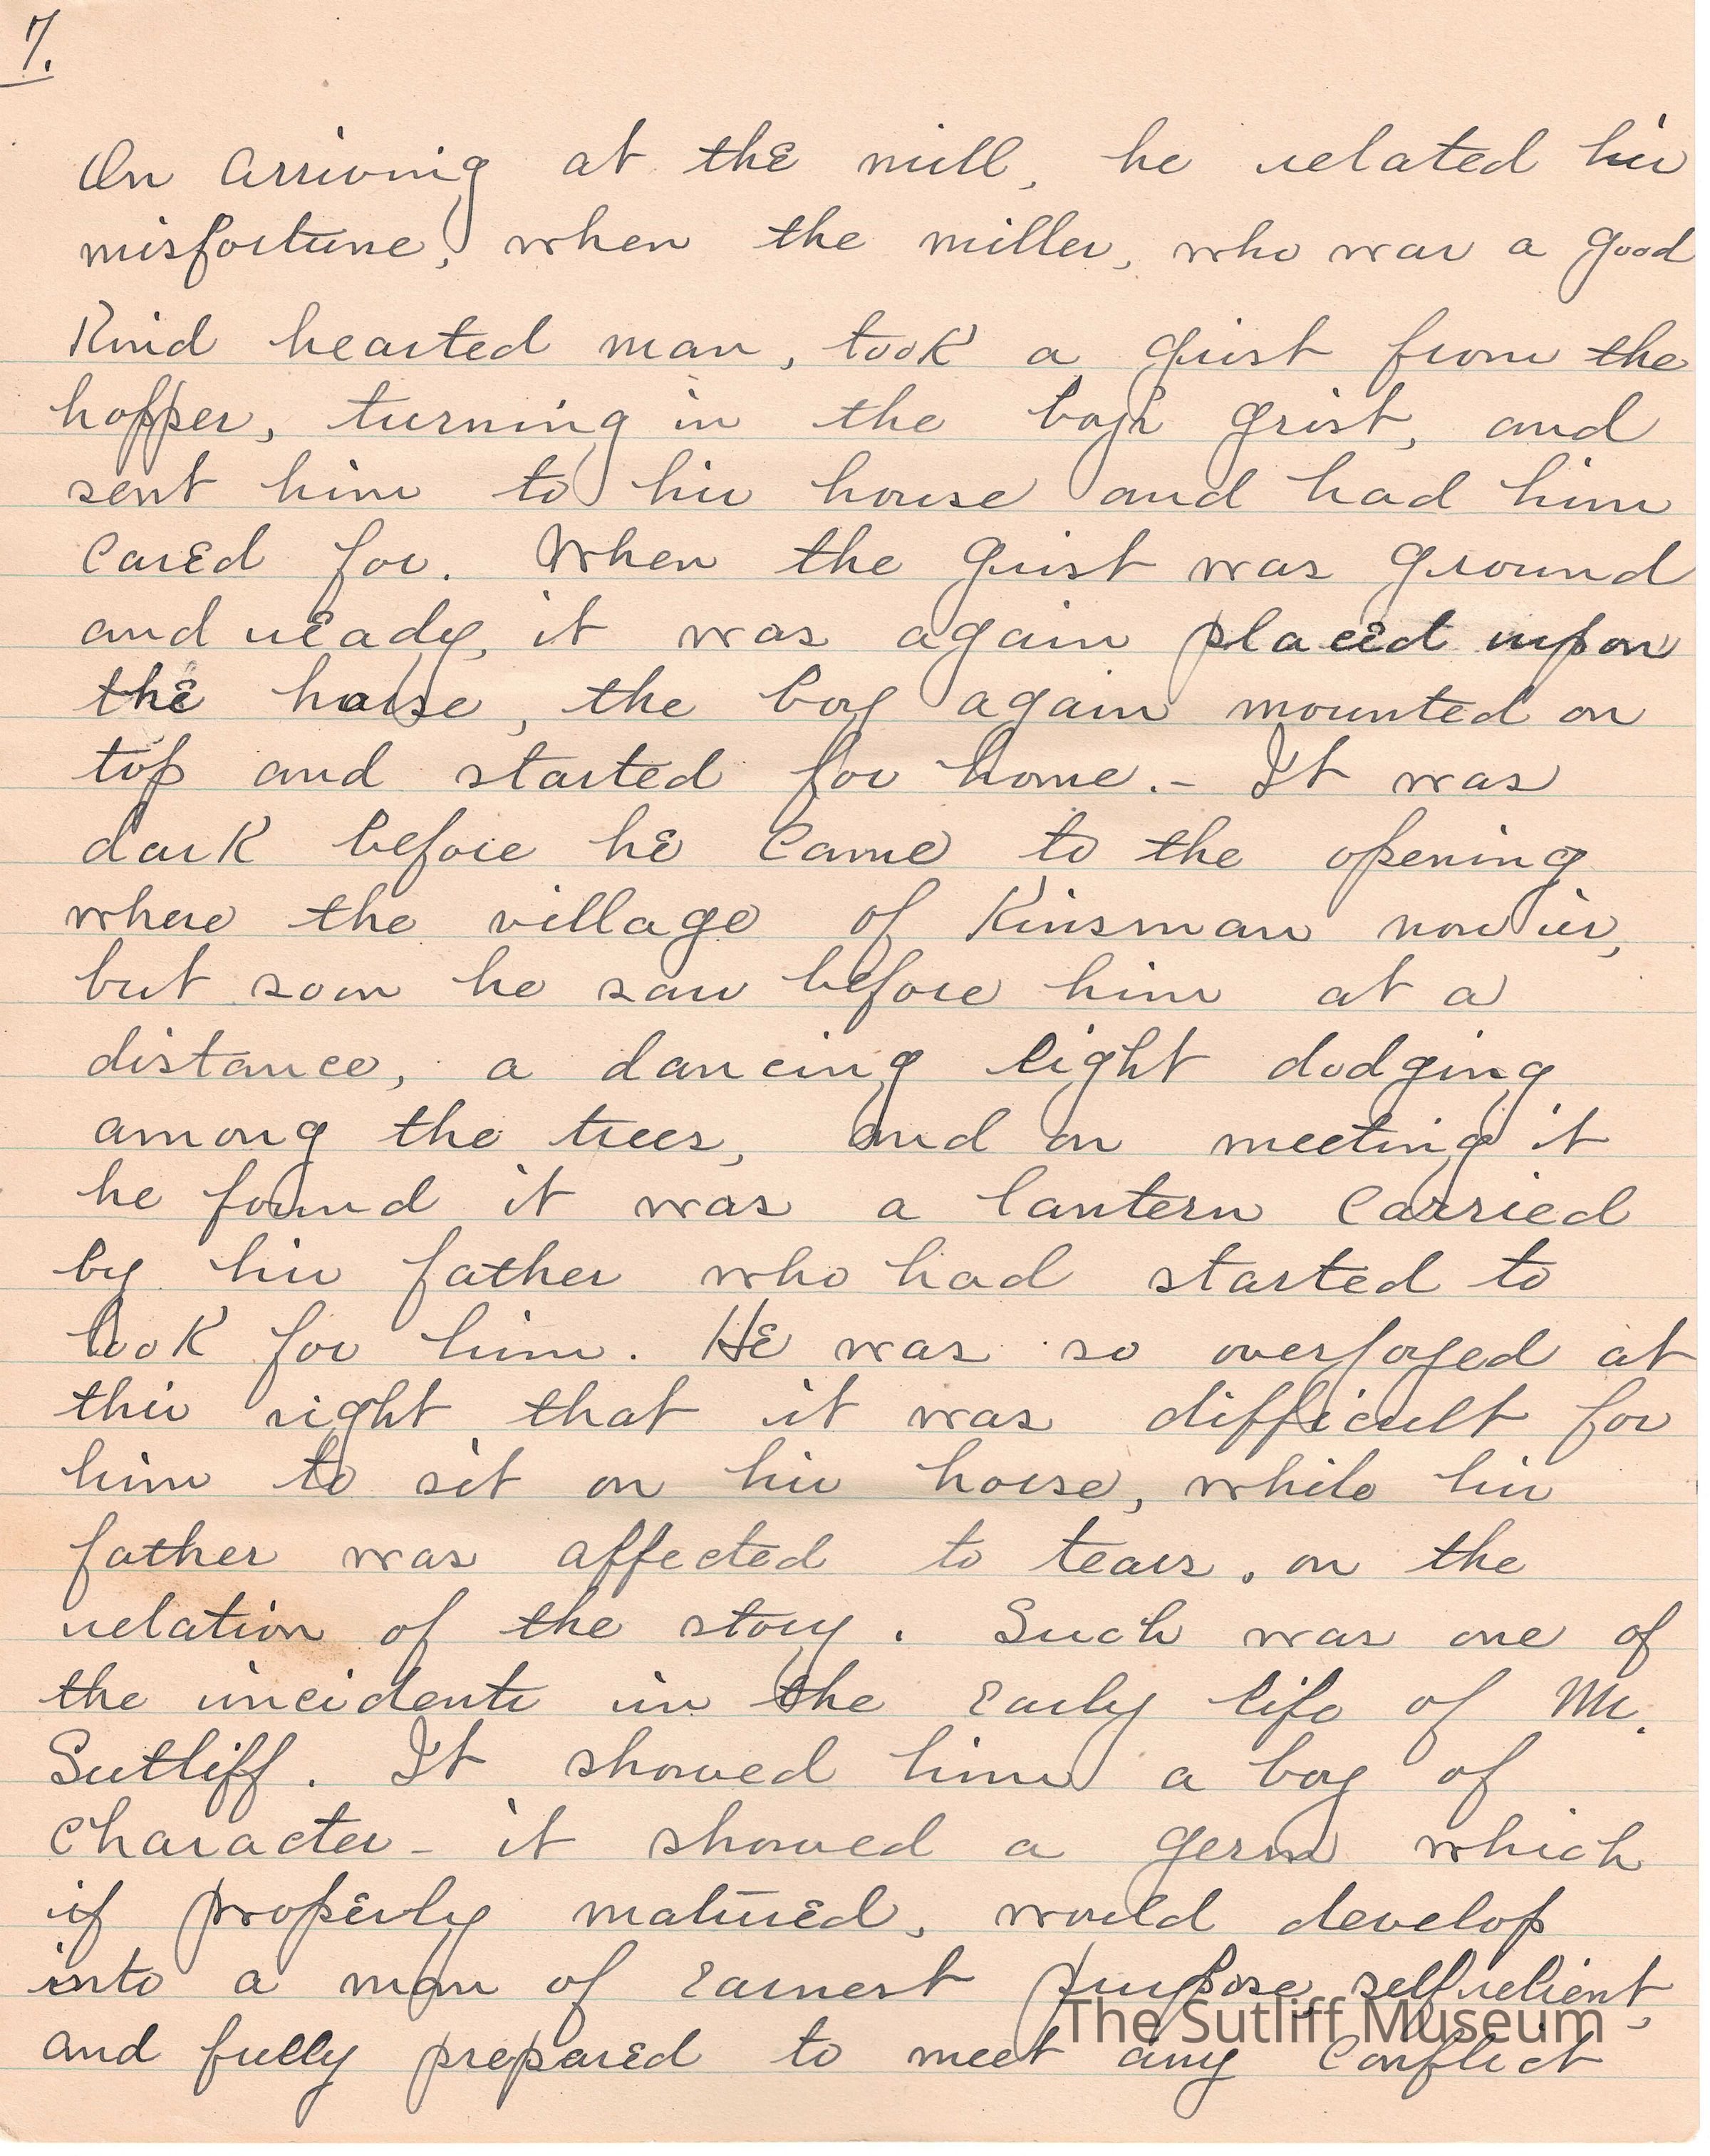 7.
On arriving at the mill, he related his
misfortune, when the miller, who was a good
Kind hearted man, took a grist from the
hopper, turning in the boy's grist, and
sent him to his house and had him
cared for. When the grist was ground
and ready, it was again placed upon
the horse, the boy again mounted on
top and started for home. - It was
dark before he came to the opening
where the village of Kinsman now is,
but soon he saw before him at a
distance, a dancing light dodging
among the trees, and on meeting it
he found it was a lantern carried
by his father who had started to
look for him. He was so overjoyed at
this sight that it was difficult for
him to sit on his horse, while his
father was affected to tears, on the
relation of the story. Such was one of
the incidents in the early life of Mr.
Sutliff. It showed him a boy of
character - it showed a germ which
if properly matured, would develop
into a man of earnest purpose, self relient,
and fully prepared to meet any conflict
The Sutliff Museum